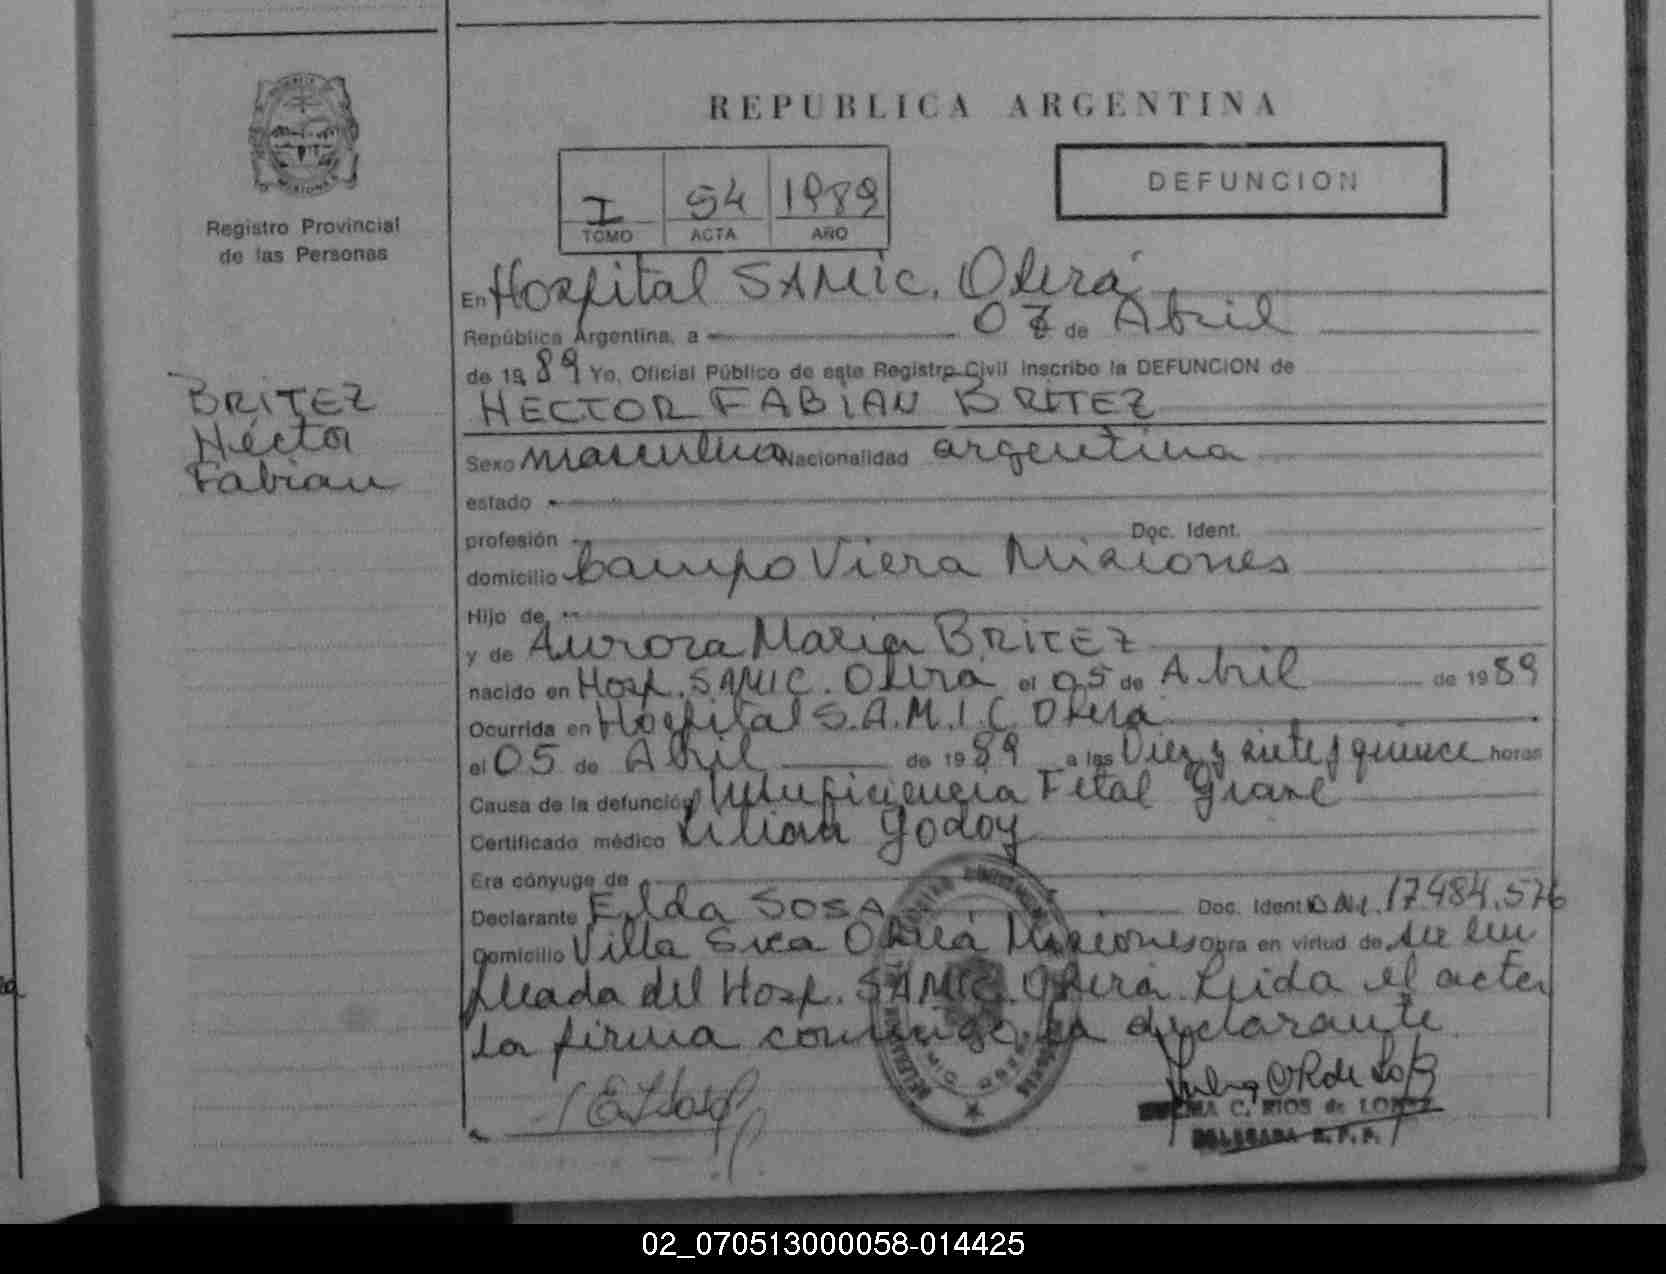 REPUBLICA ARGENTINA
DEFUNCION
I 54 1989
TOMO ACTA AÑO
Registro Provincial
de las Personas
BRITEZ
Héctor
Fabian
En Hospital SAMIC. Oberá
República Argentina, a 07 de Abril
de 1989 Yo, Oficial Público de este Registro Civil inscribo la DEFUNCION de
HECTOR FABIAN BRITEZ
Sexo masculino Nacionalidad argentina
estado
profesión Doc. Ident.
domicilio Campo Viera Misiones
Hijo de
y de Aurora Maria BRITEZ
nacido en Hosp. SAMIC. Oberá el 05 de Abril de 1989
Ocurrida en Hospital S.A.M.I.C Oberá
el 05 de Abril de 1989 a las Diez y siete y quince horas
Causa de la defunción Insuficiencia Fetal Grave
Certificado médico Lilian Godoy
Era cónyuge de
Declarante Elda SOSA Doc. Ident D.N.I. 17.484.576
Domicilio Villa Svea Oberá Misiones Obra en virtud de ser em
pleada del Hosp. SAMIC. Oberá. Leida el acta
la firma conmigo la declarante
C. RIOS de LOPEZ
DELEGADA R.P.P.
02_070513000058-014425